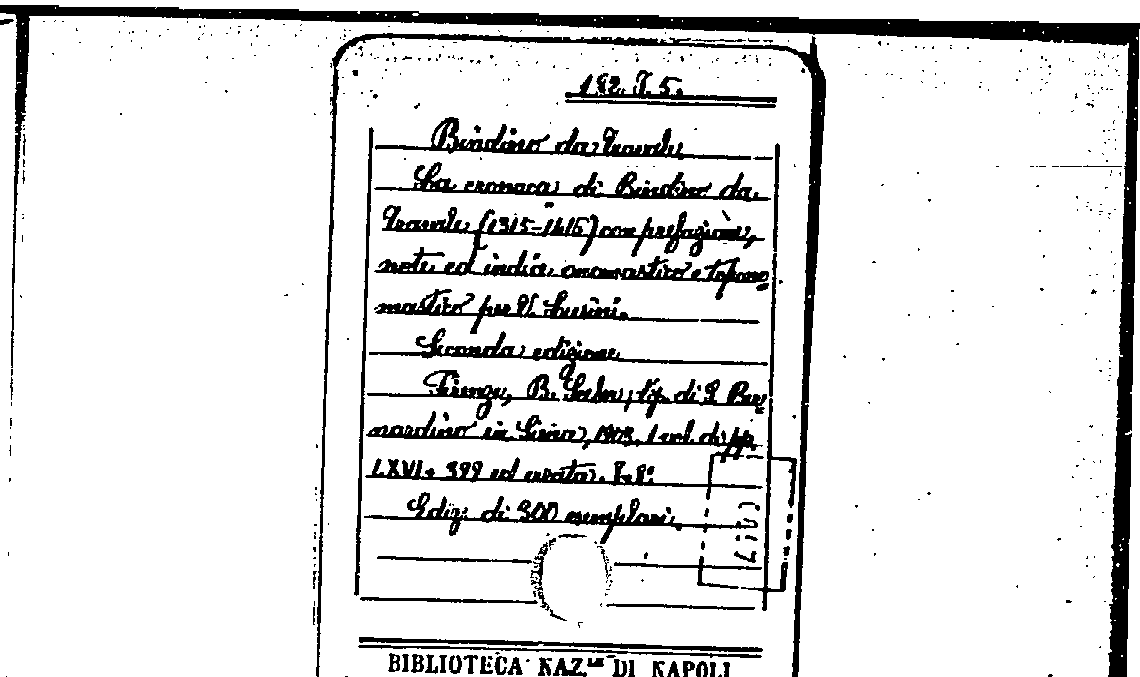 192. J. 5.
Bindino da Travale
La cronaca di Bindino da
Travale (1315-1416) con prefazione,
note ed indice onomastico e topono
mastico per V. Lusini.
Seconda edizione
Firenze, B. Seeber, tip. di S. Ber
nardino in Siena, 1903. 1 vol. di pp.
LXVI + 399 ed errata. in 8º
Ediz. di 300 esemplari.
BIBLIOTECA NAZ.LE DI NAPOLI